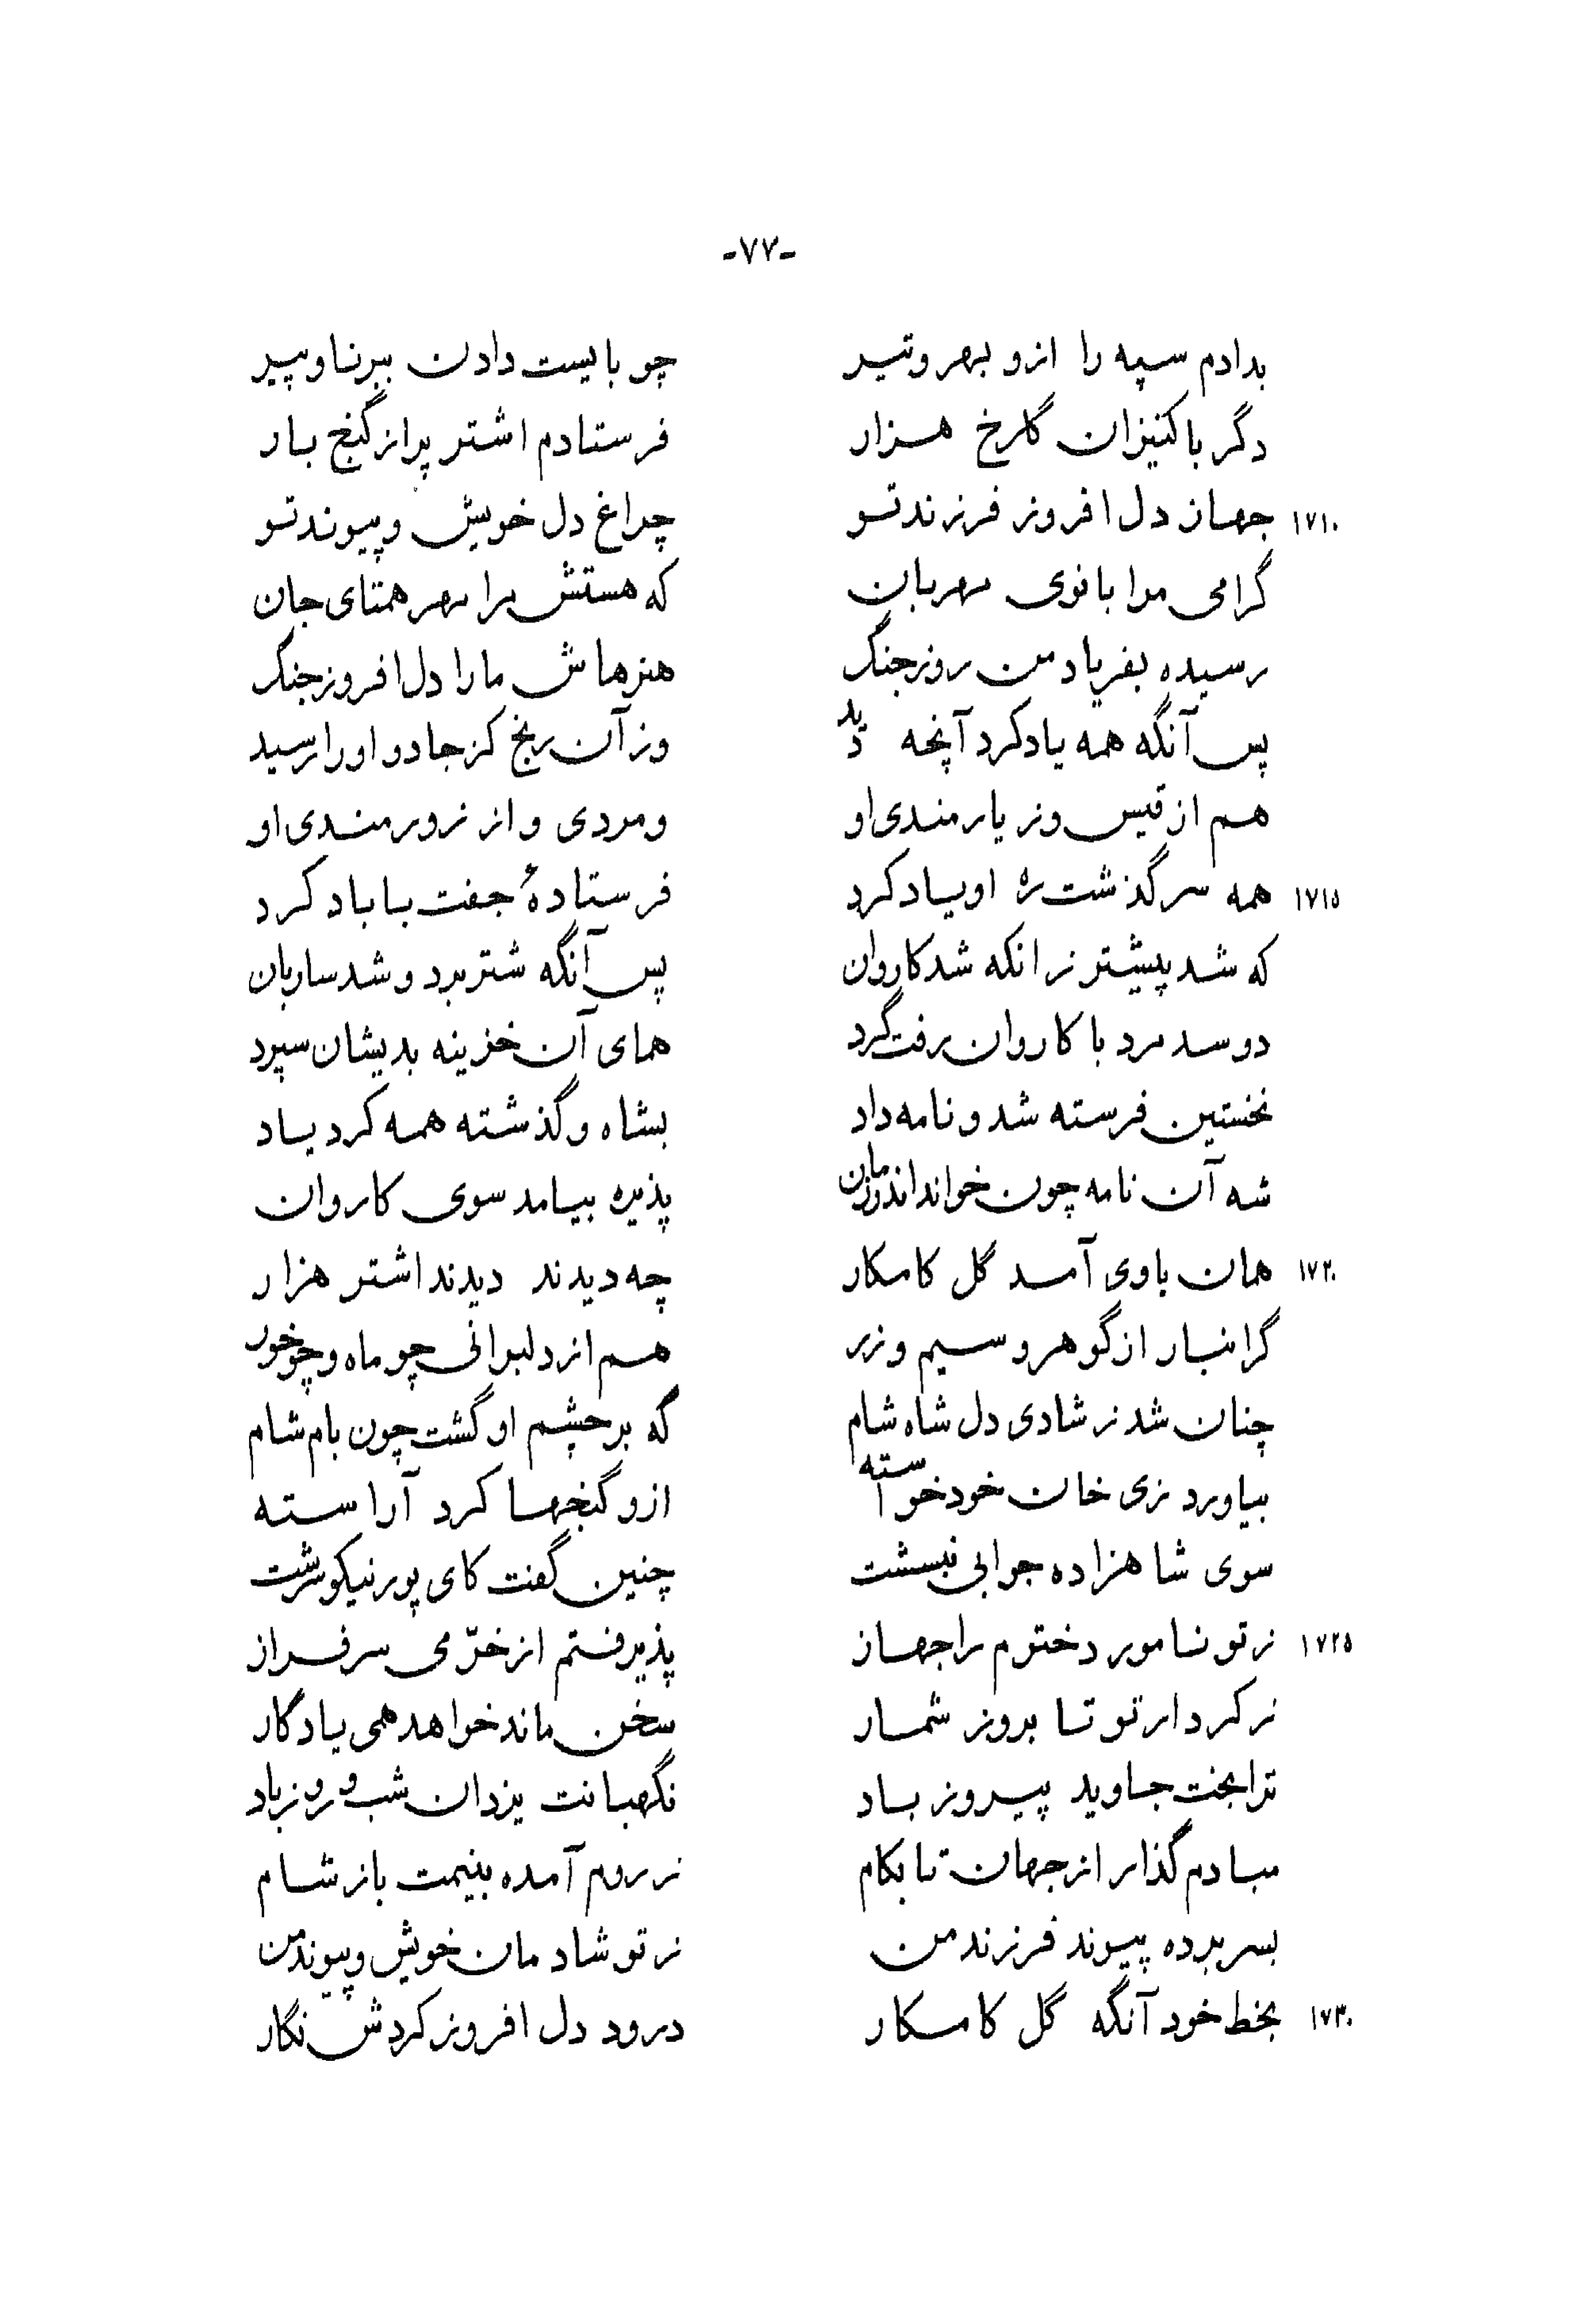 -۷۷-
بدادم سپه را ازو بهر و تیر چو بایست دادن ببرنا و پیر
دگر با کنیزان گلرخ هزار فرستادم اشتر پر از گنج بار
۱۷۱۰ جهان دل افروز فرزند تو چراغ دل خویش و پیوند تو
گرامی مرا بانوی مهربان که هستش مرا مهر همتای جان
رسیده بفریاد من روز جنگ هنرهاش ما را دل افروز جنگ
پس آنگه همه یاد کرد آنچه دید وز آن رنج کز جادو او را رسید
هم از قیس وز یارمندی او و مردی و از زورمندی او
۱۷۱۵ همه سرگذشت ره او یاد کرد فرستادهٔ جفت با باد کرد
که شد پیشتر زانکه شد کاروان پس آنگه شتر برد و شد ساربان
دوسد مرد با کاروان رفت گرد همای آن خزینه بدیشان سپرد
نخستین فرسته شد و نامه داد بشاه و گذشته همه کرد یاد
شه آن نامه چون خواند اندر زمان پذیره بیامد سوی کاروان
۱۷۲۰ همان با وی آمد گل کامکار چه دیدند دیدند اشتر هزار
گرانبار از گوهر و سیم و زر هم از دلبرانی چو ماه و چو خور
چنان شد ز شادی دل شاه شام که بر چشم او گشت چون بام شام
بیاورد زی خان خود خواسته ازو گنجها کرد آراسته
سوی شاهزاده جوابی نبشت چنین گفت کای پور نیکو سرشت
۱۷۲۵ ز تو نامور دخترم را جهاز پذیرفتم از خرّمی سرفراز
ز کردار تو تا بروز شمار سخن ماند خواهد همی یادگار
ترا بخت جاوید پیروز باد نگهبانت یزدان شب و روز باد
مبادم گذار از جهان تا بکام ز روم آمده بینمت باز شام
بسر برده پیوند فرزند من ز تو شادمان خویش و پیوند من
۱۷۳۰ بخط خود آنگه گل کامکار درود دل افروز کردش نگار